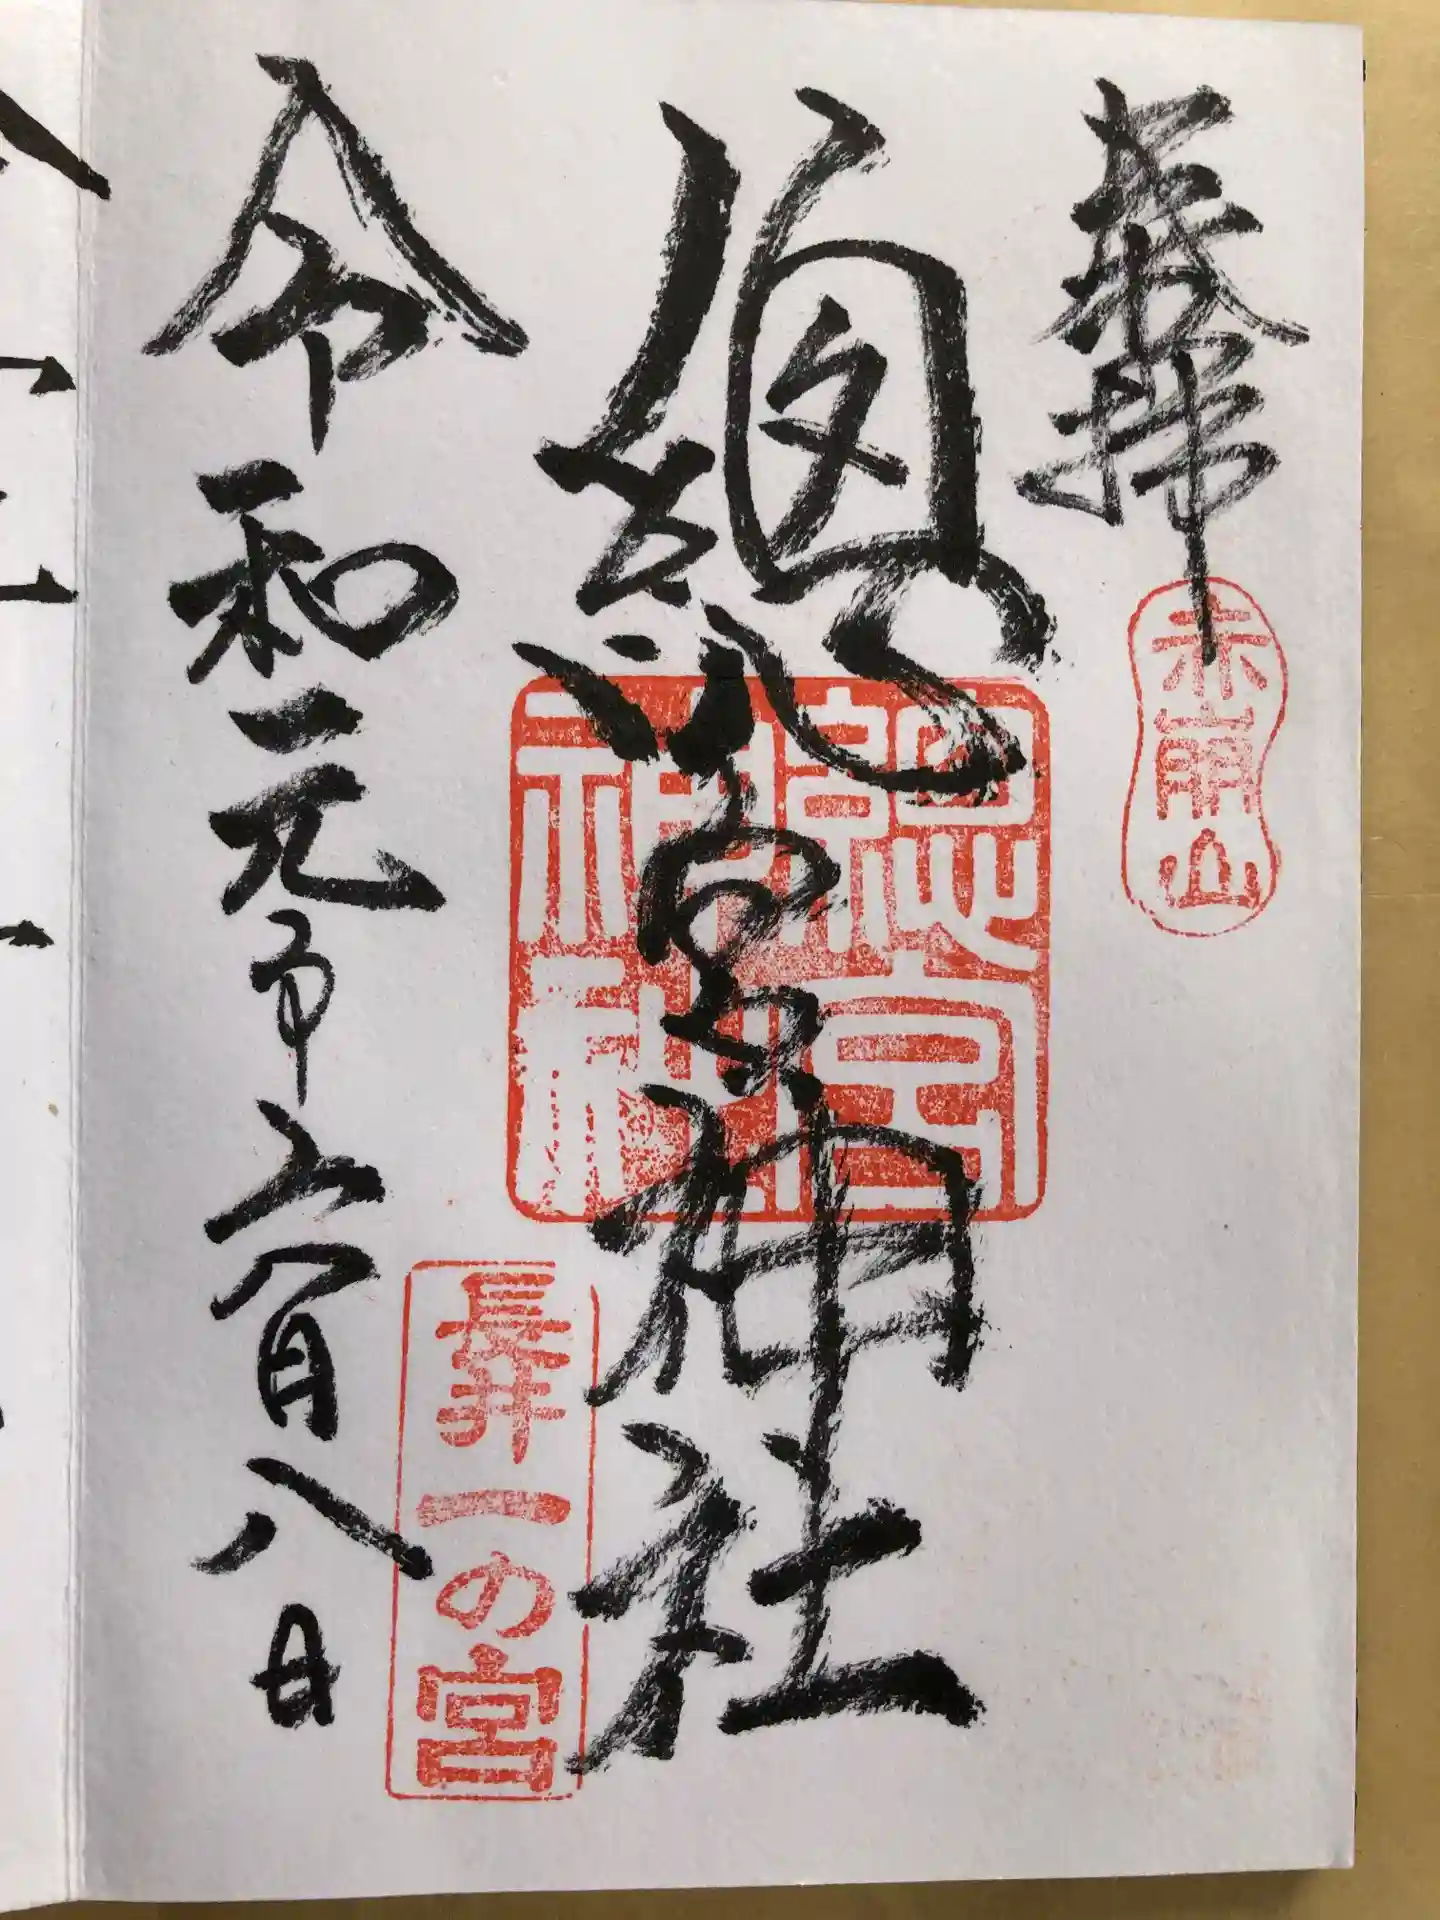 奉拝
赤崩山
總宮神社
總宮神社
長井一の宮
令和元年六月八日